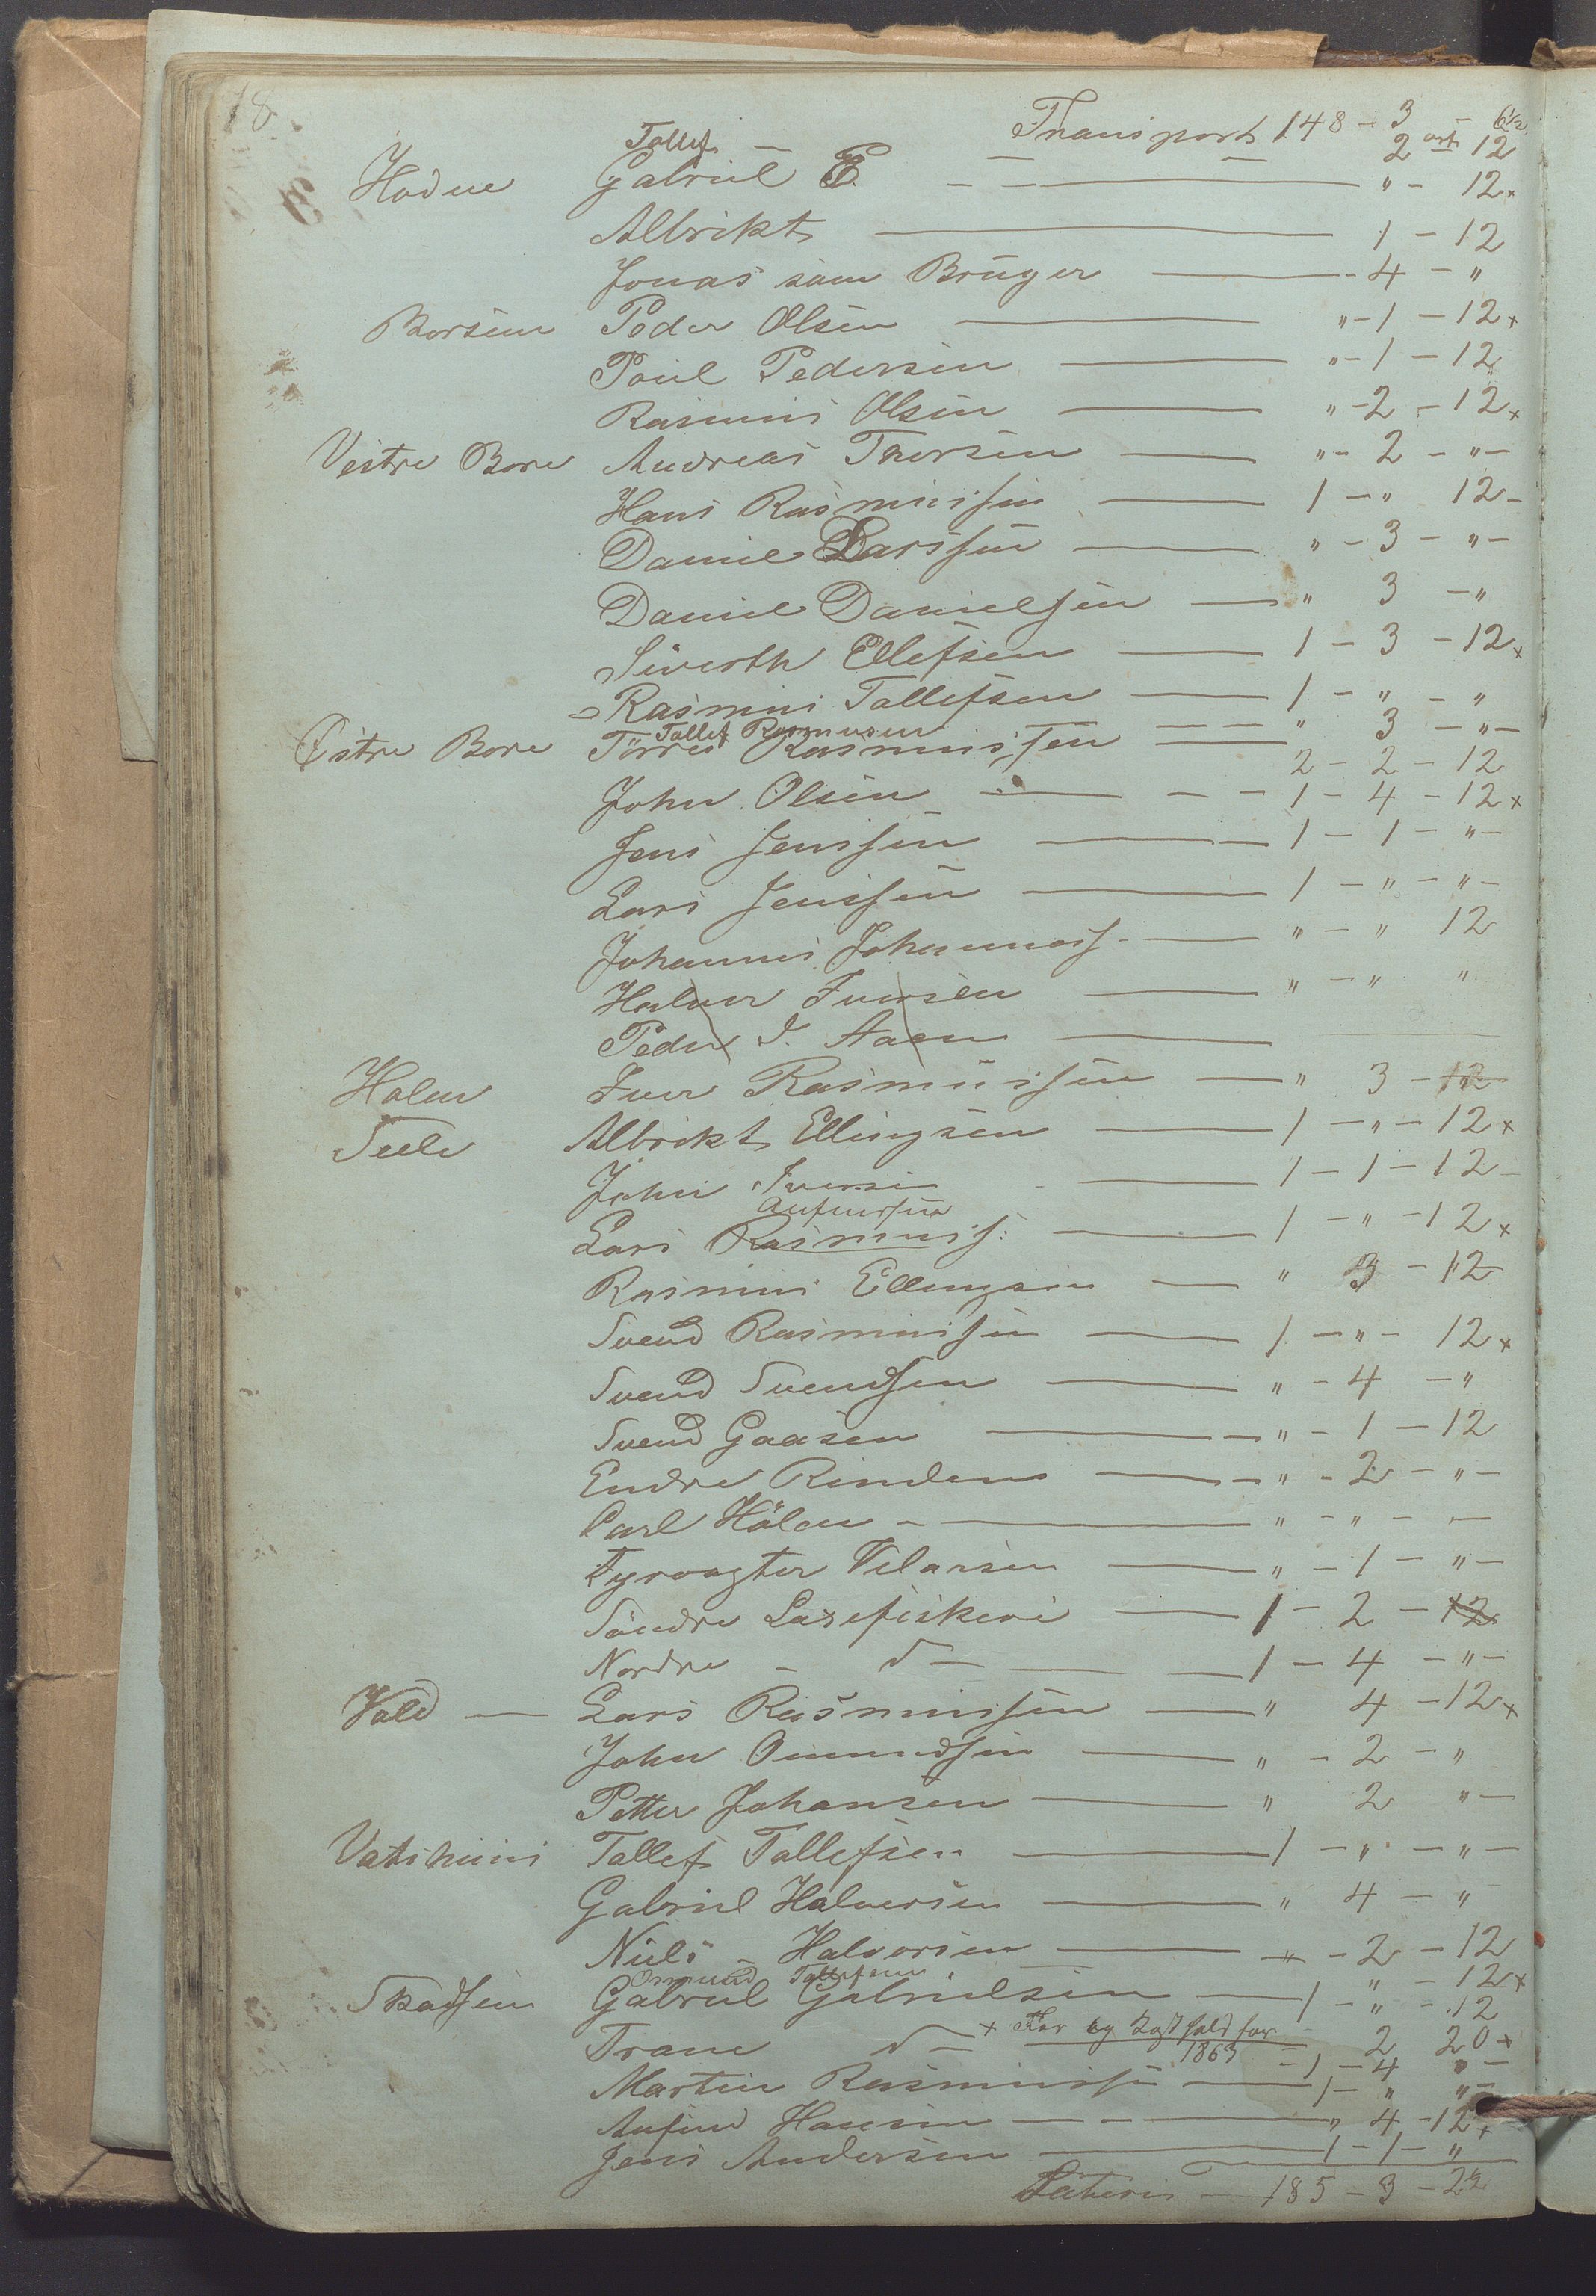 18.
Transport 148 - 3 - 6½
Tollef — 2 ort 12
Hodne Gabriel E. — " - 12 x
Albrikt — 1 - 12
Jonas som Bruger — 4 - "
Borsem Peder Olsen — " - 1 - 12 x
Poul Pedersen — " - 1 - 12
Rasmus Olsen — " - 2 - 12 x
Vestre Bore Andreas Thorsen — " - 2 - " -
Hans Rasmussen — 1 - " 12 -
Daniel Larssen — " - 3 - " -
Daniel Danielsen — " 3 - "
Siverth Ellefsen — 1 - 3 - 12 x
Rasmus Tollefsen — 1 - " - "
Tollef Rasmusen — " 3 - " -
Østre Bore Törres Rasmussen — 2 - 2 - 12
John Olsen — 1 - 4 - 12 x
Jens Jenssen — 1 - 1 - " -
Lars Jenssen — 1 - " - " -
Johannes Johanness. — " - " 12
Halvor Iversen — " - " "
Peder I. Aaen —
Holen Iver Rasmussen — " 3 - 12
Sele Albrikt Ellingsen — 1 - " - 12 x
John Iversen — 1 - 1 - 12 -
Anfinsen
Lars Rasmuss: — 1 - " - 12 x
Rasmus Ellingsen — " 3 - 12
Svend Rasmussen — 1 - " - 12 x
Svend Svendsen — " - 4 - "
Svend Gaasen — " - 1 - 12
Endre Rinden — " - 2 - " -
Carl Hölen — " - " - " -
Fyrvogter Vilarsen — " - 1 - " -
Söndre Laxefiskeri — 1 - 2 - 12
Nordre - d - — 1 - 4 - " -
Vold — Lars Rasmussen — " 4 - 12 x
John Omundsen — " - 2 - "
Petter Johansen — " 2 " -
Vatshuus Tollef Tollefsen — 1 - " - " -
Gabriel Halversen — " 4 - "
Niels - Halvorsen — " - 2 - 12
Omund Tollefsen — " - 12 x
Skadsem Gabriel Gabrielsen — 1 - " - 12
Trane d - x For og Kosthold for 1863 — 2 20 x
- 1 - 4 " -
Martin Rasmussen — 1 - " " -
Anfind Hansen — " 4 - 12 x
Jens Andersen — 1 - 1 - "
Lateris — 185 - 3 - 2½